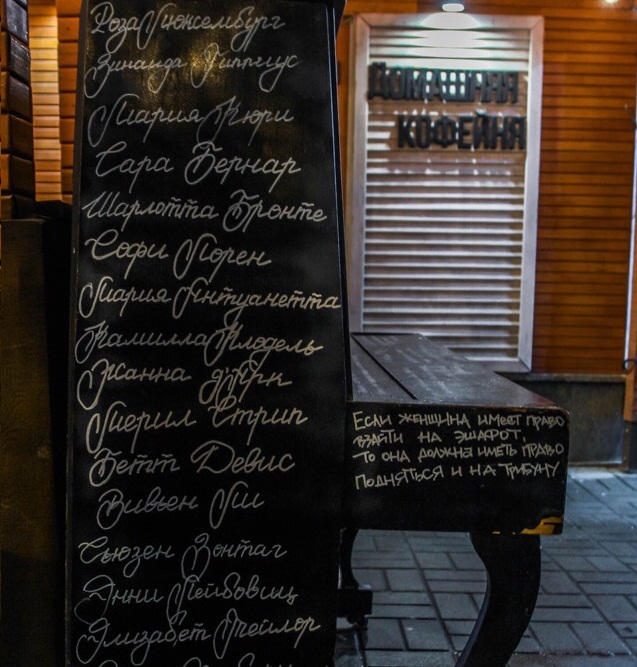 Роза Люксембург
Зинаида Гиппиус
Мария Кюри
Сара Бернар
Шарлотта Бронте
Софи Лорен
Мария Антуанетта
Камилла Клодель
Жанна д'Арк
Мерил Стрип
Бетт Девис
Вивьен Ли
Сьюзен Зонтаг
Энни Лейбовиц
Элизабет Тейлор
ДОМАШНЯЯ
КОФЕЙНЯ
Если женщина имеет право
взойти на эшафот,
то она должна иметь право
подняться и на трибуну